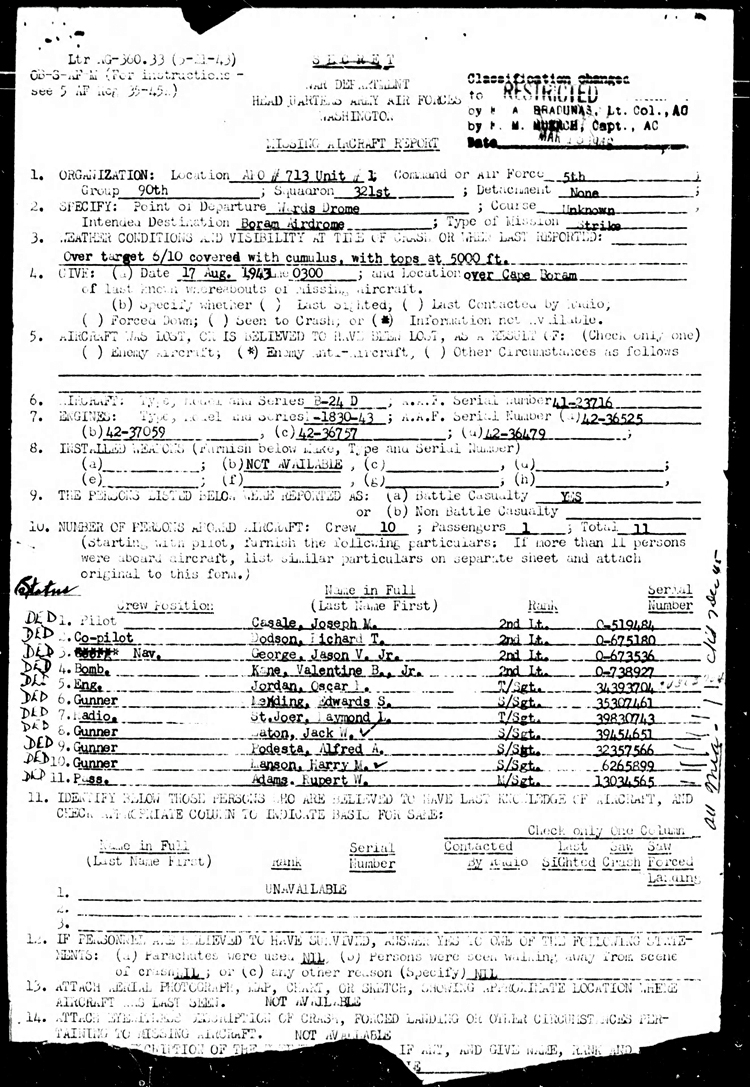 Ltr AG-360.33 (5-21-43)
OB-S-AF-M (For instructions -
see 5 AF Reg 35-45.)
SECRET
WAR DEPARTMENT
HEADQUARTERS ARMY AIR FORCES
WASHINGTON
Classification changed
to RESTRICTED
by A BRADUNAS, Lt. Col., AC
by F. M. Capt., AC
Date MAR
MISSING AIRCRAFT REPORT
1. ORGANIZATION: Location APO # 713 Unit # 1; Command or Air Force 5th ;
Group 90th ; Squadron 321st ; Detachment None
2. SPECIFY: Point of Departure Wards Drome ; Course Unknown
Intended Destination Boram Airdrome ; Type of Mission Strike
3. WEATHER CONDITIONS AND VISIBILITY AT TIME OF CRASH OR WHEN LAST REPORTED:
Over target 6/10 covered with cumulus, with tops at 5000 ft.
4. GIVE: (a) Date 17 Aug. 1943 0300 ; and Location over Cape Boram
of last known whereabouts of missing aircraft.
(b) Specify whether ( ) Last Sighted; ( ) Last Contacted by Radio;
( ) Forced Down; ( ) Seen to Crash; or (*) Information not available.
5. AIRCRAFT WAS LOST, OR IS BELIEVED TO HAVE BEEN LOST, AS A RESULT OF: (Check only one)
( ) Enemy Aircraft; (*) Enemy Anti-Aircraft, ( ) Other Circumstances as follows
6. AIRCRAFT: Type, Model and Series B-24 D ; A.A.F. Serial Number 41-23716
7. ENGINES: Type, Model and Series -1830-43 ; A.A.F. Serial Number (a) 42-36525
(b) 42-37059 , (c) 42-36757 ; (d) 42-36479 ;
8. INSTALLED WEAPONS (Furnish below Make, Type and Serial Number)
(a) ; (b) NOT AVAILABLE , (c) , (d) ;
(e) ; (f) , (g) ; (h) ,
9. THE PERSONS LISTED BELOW WERE REPORTED AS: (a) Battle Casualty YES
or (b) Non Battle Casualty
10. NUMBER OF PERSONS ABOARD AIRCRAFT: Crew 10 ; Passengers 1 ; Total 11
(Starting with pilot, furnish the following particulars: If more than 11 persons
were aboard aircraft, list similar particulars on separate sheet and attach
original to this form.)
Status
Crew Position Name in Full (Last Name First) Rank Serial Number
DED 1. Pilot Casale, Joseph M. 2nd Lt. O-519484
DED 2. Co-pilot Dodson, Richard T. 2nd Lt. O-675180
DED 3. Nav. George, Jason V. Jr. 2nd Lt. O-673536
DED 4. Bomb. Kane, Valentine B., Jr. 2nd Lt. O-738927
DED 5. Eng. Jordan, Oscar T/Sgt. 34393704
DED 6. Gunner Edwards S. S/Sgt. 35307461
DED 7. Radio. St.Joer, Raymond L. T/Sgt. 39830743
DED 8. Gunner Eaton, Jack W. ✓ S/Sgt. 39454651
DED 9. Gunner Podesta, Alfred A. S/Sgt. 32357566
DED 10. Gunner Manson, Harry M. ✓ S/Sgt. 6265899
DED 11. Pass. Adams. Rupert W. M/Sgt. 13034565
11. IDENTIFY BELOW THOSE PERSONS WHO ARE BELIEVED TO HAVE LAST KNOWLEDGE OF AIRCRAFT, AND
CHECK APPROPRIATE COLUMN TO INDICATE BASIS FOR SAME:
Check only One Column
Name in Full Serial Contacted Last Saw Saw
(Last Name First) Rank Number By Radio Sighted Crash Forced
Landing
1. UNAVAILABLE
2.
3.
12. IF PERSONNEL ARE BELIEVED TO HAVE SURVIVED, ANSWER YES TO ONE OF THE FOLLOWING STATE-
MENTS: (a) Parachutes were used NIL, (b) Persons were seen walking away from scene
of crash NIL; or (c) any other reason (Specify) NIL
13. ATTACH AERIAL PHOTOGRAPH, MAP, CHART, OR SKETCH, SHOWING APPROXIMATE LOCATION WHERE
AIRCRAFT WAS LAST SEEN. NOT AVAILABLE
14. ATTACH EYEWITNESS DESCRIPTION OF CRASH, FORCED LANDING OR OTHER CIRCUMSTANCES PER-
TAINING TO MISSING AIRCRAFT. NOT AVAILABLE
DESCRIPTION OF THE IF ANY, AND GIVE NAME, RANK AND